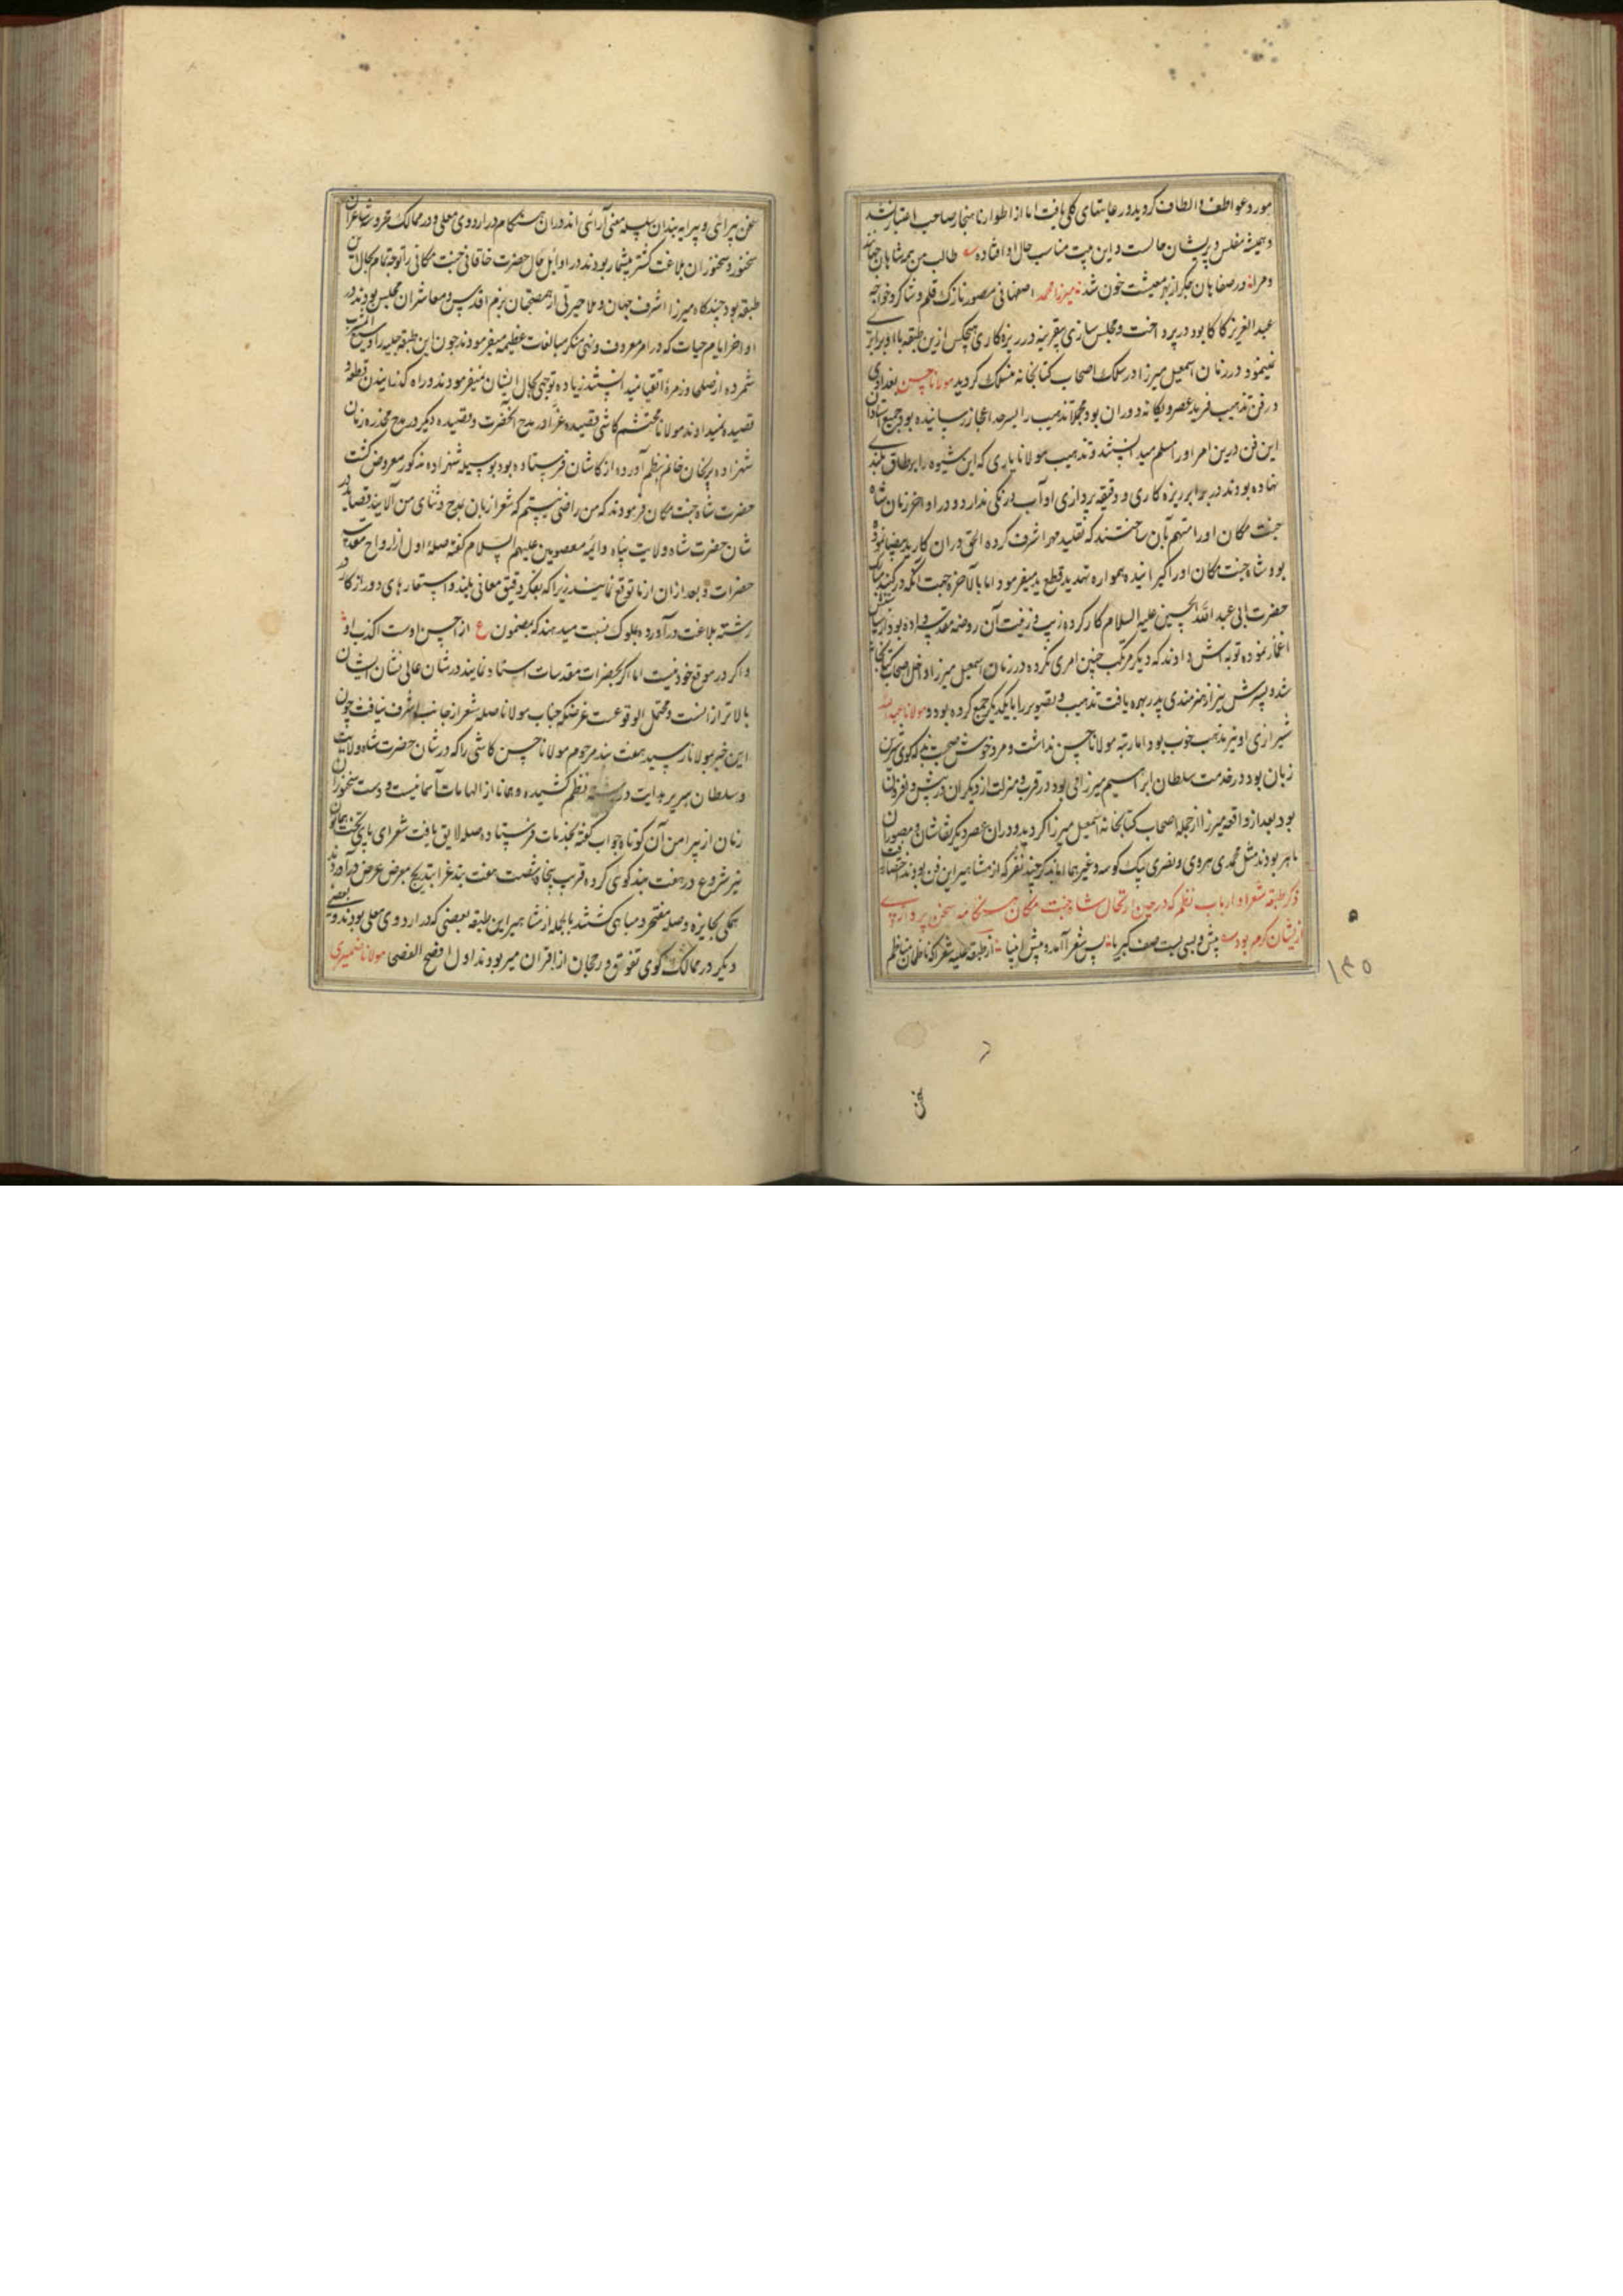 مورد عواطف و الطاف گردید و رعایتهای کلی یافت اما از اطوار ناهنجار صاحب اعتبار نشد
و همیشه مفلس و پریشان حالست و این بیت مناسب حال او افتاده طالب من همه شاهان جهانند
و مرا در صفاهان جگر از بهر معیشت خون شد میرزا محمد اصفهانی مصور نازک قلم و شاگرد خواجه
عبد العزیز کاکا بود در پرداخت و مجلس سازی بیقرینه در ریزه کاری هیچکس ازین طبقه با او برابری
نمینمود در زمان اسمعیل میرزا در سلک اصحاب کتابخانه منسلک گردید مولانا حسن بغدادی
در فن تذهیب فرید عصر و یگانه دوران بود مجملا تذهیب را بسرحد اعجاز رسانیده بود جمیع استادان
این فن درین امر او را مسلم میدانستند و تذهیب مولانا یاری که این شیوه را بر طاق بلندی
نهاده بودند در برابر ریزه کاری و دقیقه پردازی او آب و رنگی ندارد و در اواخر زمان شاه
جنت مکان او را متهم بآن ساختند که تقلید مهر اشرف کرده الحق در آن کار ید بیضا نموده
بود شاه جنت مکان او را گیرانیده همواره تهدید قطع ید میفرمود اما بالاخره جهت آنکه در گنبد مبارک
حضرت ابی عبد الله الحسین علیه السلام کار کرده زیب و زینت آن روضه مقدسه داده بود از سیاستش
اغماز نموده توبه اش دادند که دیگر مرتکب چنین امری نگردد در زمان اسمعیل میرزا داخل اصحاب کتابخانه
شد و پسرش نیز از هنرمندی پدر بهره یافت تذهیب و تصویر را با یکدیگر جمع کرده بود و مولانا عبد الله
شیرازی او نیز مذهب خوب بود اما رتبه مولانا حسن نداشت و مرد خوش صحبت بذله گوی شیرین
زبان بود در خدمت سلطان ابراهیم میرزا می بود در قرب و منزلت از دیگران در پیش و افزون
بود بعد از واقعه میرزا از جمله اصحاب کتابخانه اسمعیل میرزا گردید و در آن عصر دیگر نقاشان و مصوران
ماهر بودند مثل محمدی هروی و نصری بیک کوسه و غیرهما اما بذکر چند نفر که از مشاهیر این فن بودند اختصار
ذکر طبقه شعرا و ارباب نظم که در حین ارتحال شاه جنت مکان هنگامه سخن پردازی
ازیشان گرم بود پیش و پسی بست صف کبریا پس شعرا آمد و پیش انبیا از طبقه علیه شعرا که ناظمان مناظم
۱۴۵
سخن پیرائی و پیرایه بندان سلسله معنی آرائی اند در آن هنگام در اردوی معلی و در ممالک محروسه شاعران
سخنور و سخنوران بلاغت گستر بیشمار بودند در اوایل حال حضرت خاقانی جنت مکانی را توجه تمام بحال این
طبقه بود چندگاه میرزا اشرف جهان و ملا حیرتی از همصحبتان بزم اقدس و معاشران مجلس بودند و در
اواخر ایام حیات که در امر معروف و نهی منکر مبالغات عظیمه میفرمودند چون این طبقه جلیله را وسیع المشرب
شمرده از صلحا و زمره اتقیا نمیدانستند زیاده توجهی بحال ایشان نمیفرمودند و راه گذرانیدن قطعه و
قصیده نمیدادند مولانا محتشم کاشی قصیده غرا در مدح آنحضرت و قصیده دیگر در مدح مخدره زمان
شهزاده پریخان خانم بنظم آورده از کاشان فرستاده بود بوسیله شهزاده مذکور معروض گشت
حضرت شاه جنت مکان فرمودند که من راضی نیستم که شعرا زبان بمدح و ثنای من آلایند قصاید در
شان حضرت شاه ولایت پناه و ائمه معصومین علیهم السلام گفته صله اول از ارواح مقدسه
حضرات و بعد از آن از ما توقع نمایند زیرا که بفکر دقیق و معانی بلند و استعارهای دور از کار در
رشته بلاغت در آورده بملوک نسبت میدهند که بمضمون ع از احسن اوست اکذب او
و اگر در موقع خود نیست اما اگر بحضرات مقدسات اسناد نمایند در شان عالی نشان ایشان
بالاتر از آنست و محتمل الوقوعست غرضکه جناب مولانا صله شعر از جانب اشرف نیافت چون
این خبر بمولانا رسید هفت بند مرحوم مولانا حسن کاشی را که در شان حضرت شاه ولایت
و سلطان سریر هدایت در رشته نظم کشیده و همانا از الهامات آسمانیست و دست سخنوران
زمان از پیرامن آن کوتاه جواب گفته بخدمات فرستاده صله لایق یافت شعرای پای تخت همایون
نیز شروع در هفت بند گوئی کرده قریب پنجاه شصت هفت بند غرا بتدریج بمعرض عرض در آوردند
همگی بجایزه و صله مفتخر و مباهی گشتند بالجمله از مشاهیر این طبقه بعضی که در اردوی معلی بودند و بعضی
دیگر در ممالک گوی تفوق و رجحان از اقران میربودند اول افصح الفصحی مولانا ضمیری